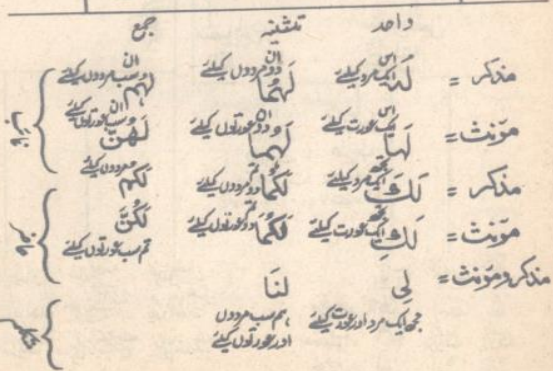 واحد تثنیہ جمع
مذکر = لَہٗ اس ایک مرد کیلئے لَہُمَا ان دو مردوں کیلئے لَہُم ان سب مردوں کیلئے
مؤنث = لَہَا اس ایک عورت کیلئے لَہُمَا ان دو عورتوں کیلئے لَہُنَّ ان سب عورتوں کیلئے
غائب
مذکر = لَكَ تجھ ایک مرد کیلئے لَكُمَا تم دو مردوں کیلئے لَكُم مردوں کیلئے
مؤنث = لَكِ تجھ ایک عورت کیلئے لَكُمَا تم دو عورتوں کیلئے لَكُنَّ تم سب عورتوں کیلئے
حاضر
مذکر و مؤنث = لِی مجھ ایک مرد اور عورت کیلئے لَنَا ہم سب مردوں
اور عورتوں کیلئے
متکلم